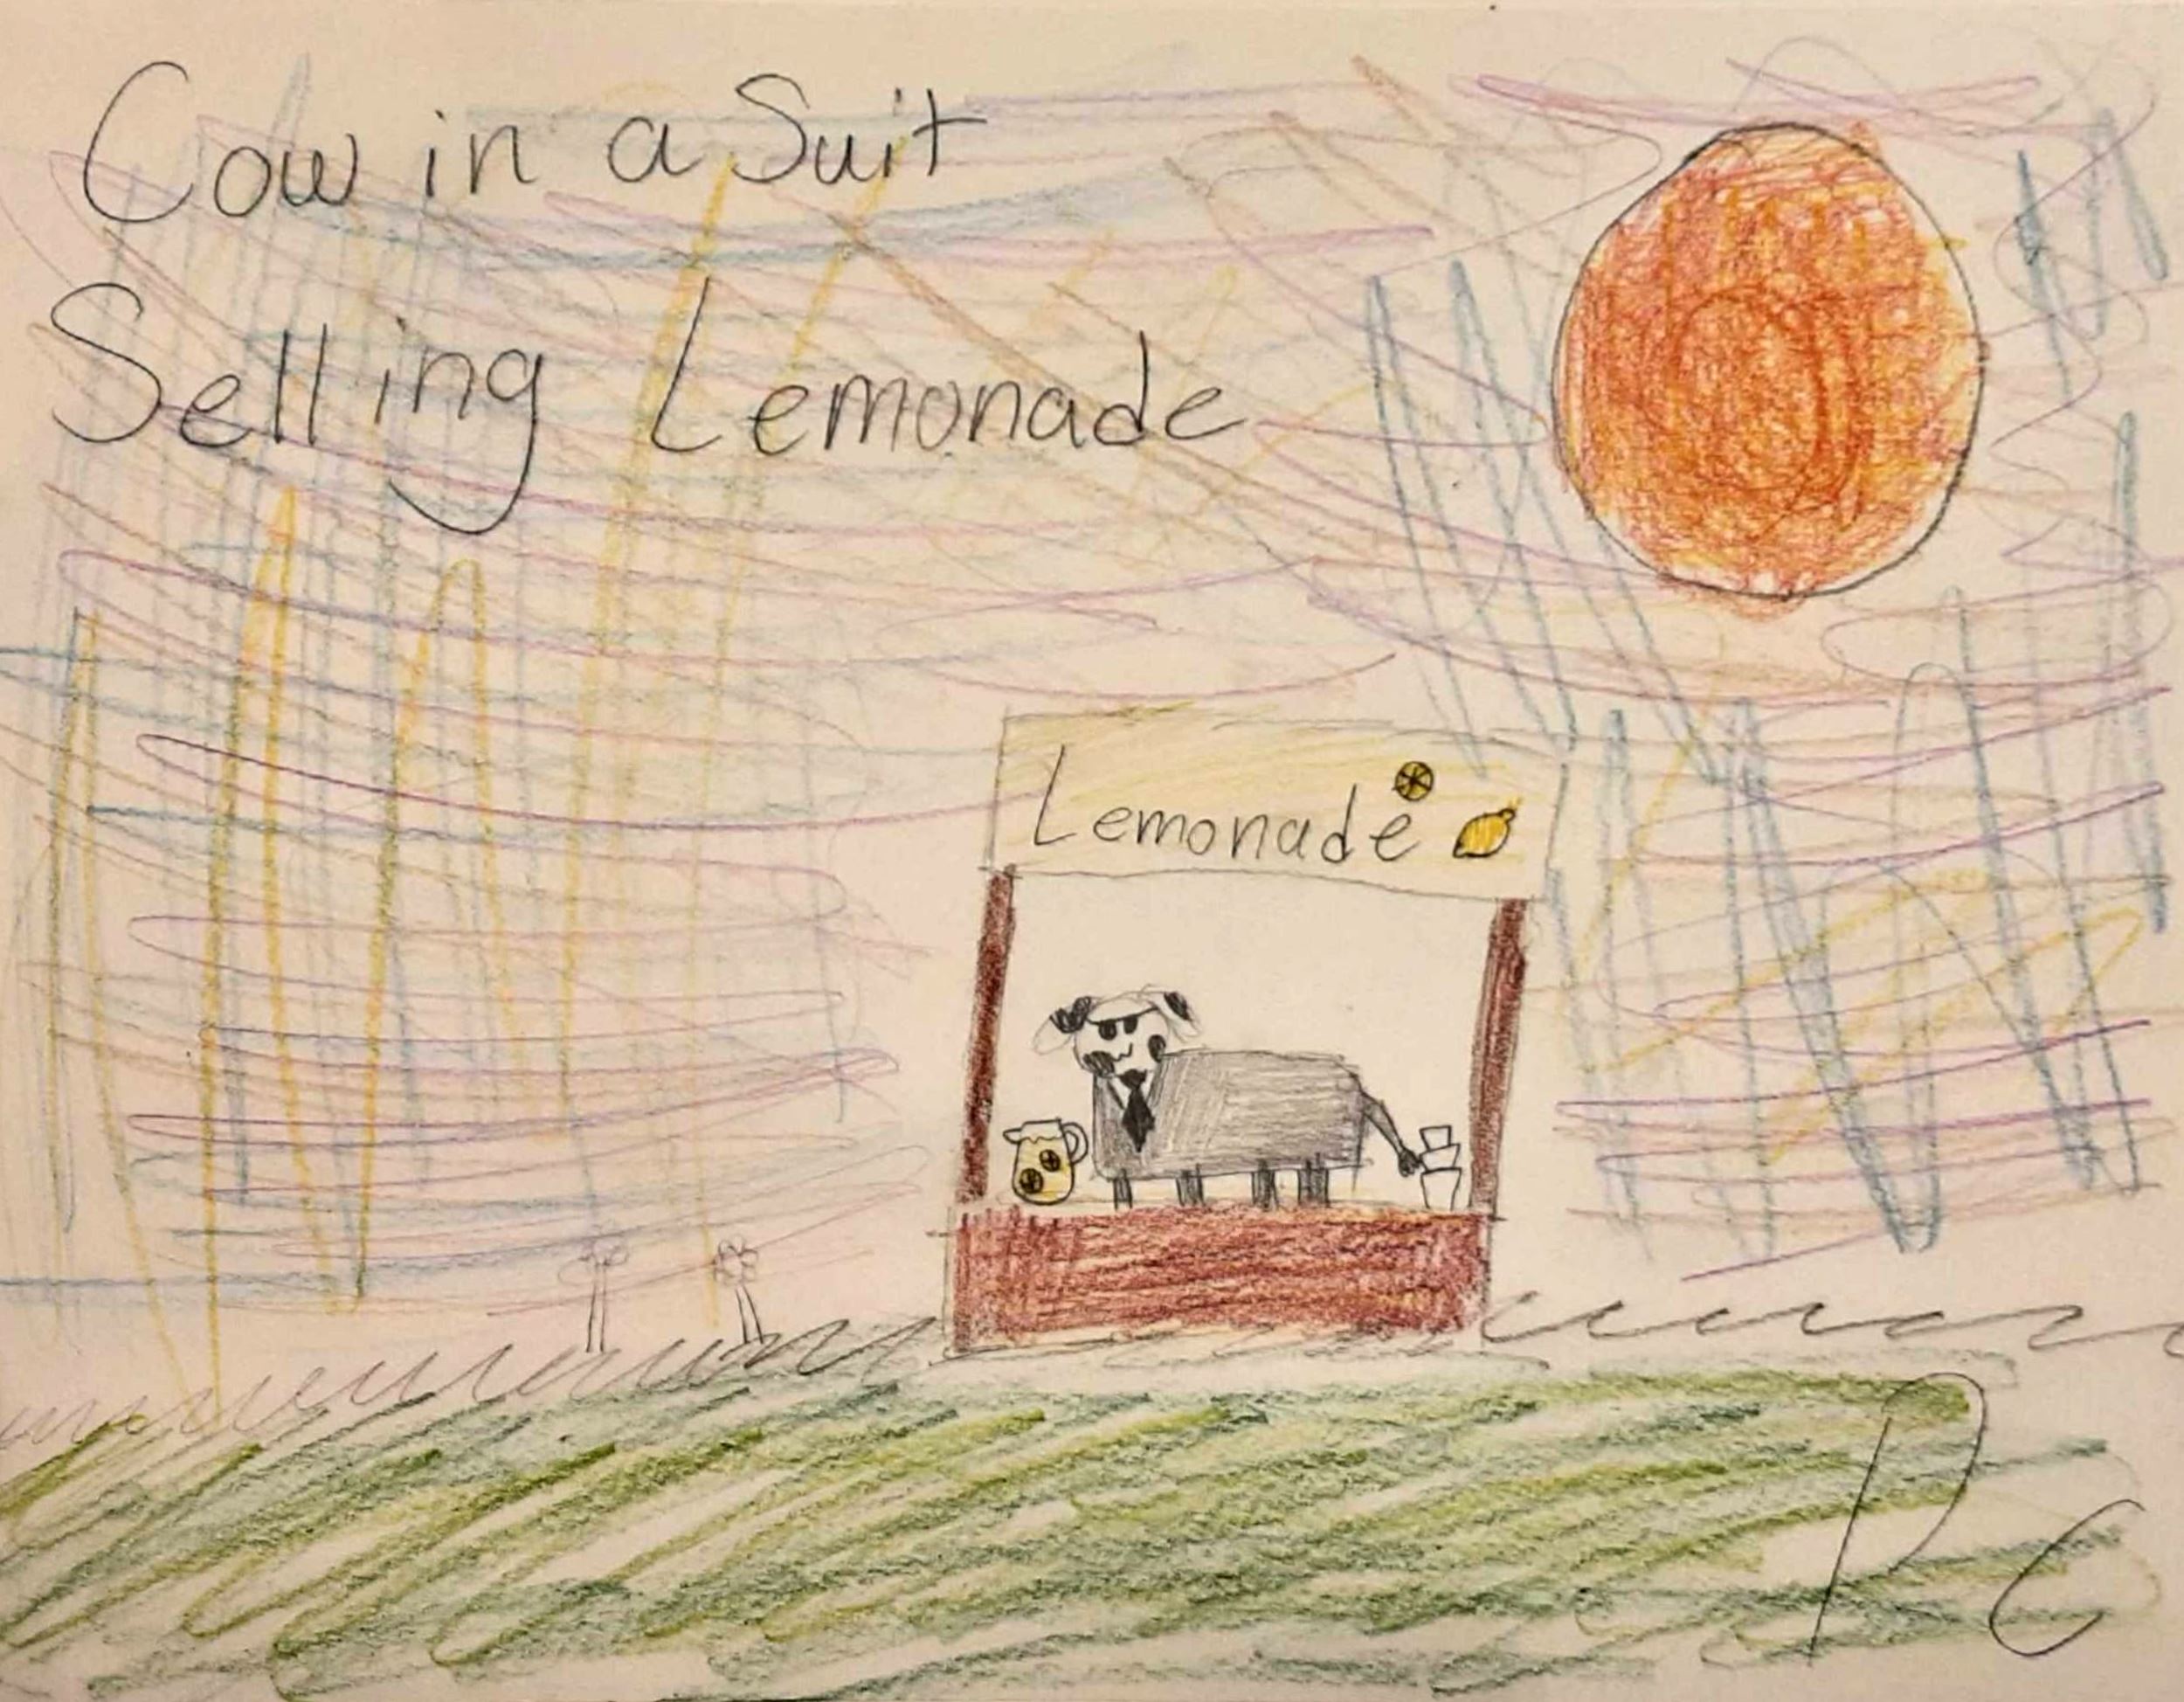 Cow in a Suit
Selling Lemonade
Lemonade
PC